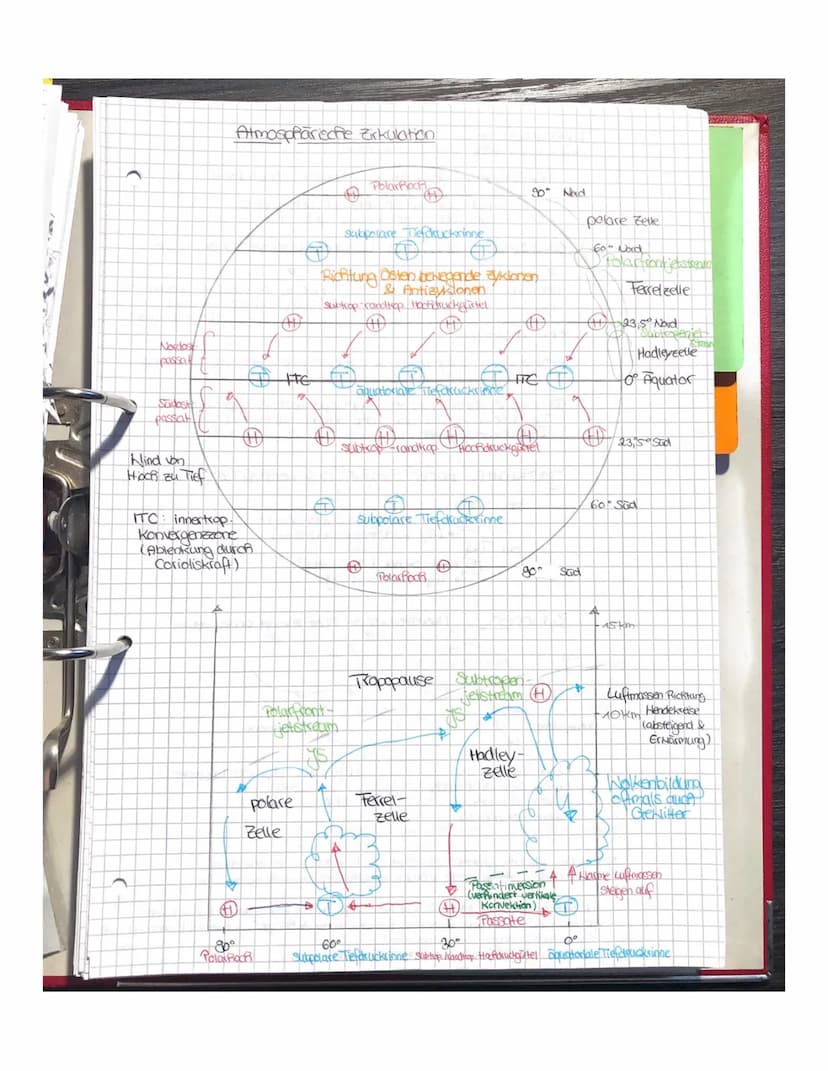 Atmosphärische Zirkulation
H Polarhoch H
90° Nord
polare Zelle
subpolare Tiefdruckrinne
T T T
60° Nord
Polarfrontjetstream
Richtung Osten bewegende Zyklonen
& Antizyklonen
Ferrelzelle
subtrop.-randtrop. Hochdruckgürtel
H H H H H
23,5° Nord
Subtropenjet-
stream
Nordost
passat
Hadleyzelle
T ITC T T T ITC T
0° Äquator
äquatoriale Tiefdruckrinne
Südost
passat
H H H H H H
subtrop.-randtrop. Hochdruckgürtel
23,5° Süd
Wind von
Hoch zu Tief
T T T
60° Süd
subpolare Tiefdruckrinne
ITC: innertrop.
Konvergenzzone
(Ablenkung durch
Corioliskraft)
H H
Polarhoch
90° Süd
15km
Tropopause
Subtropen-
jetstream
H
JS
Luftmassen Richtung
Wendekreise
(absteigend &
Erwärmung)
10km
Polarfront-
jetstream
JS
Hadley-
zelle
polare
Zelle
Ferrel-
zelle
Wolkenbildung
oftmals auch
Gewitter
Passatinversion
(verhindert vertikale
Konvektion)
Warme Luftmassen
steigen auf
H T H T
Passate
90° 60° 30° 0°
Polarhoch subpolare Tiefdruckrinne subtrop./randtrop. Hochdruckgürtel äquatoriale Tiefdruckrinne